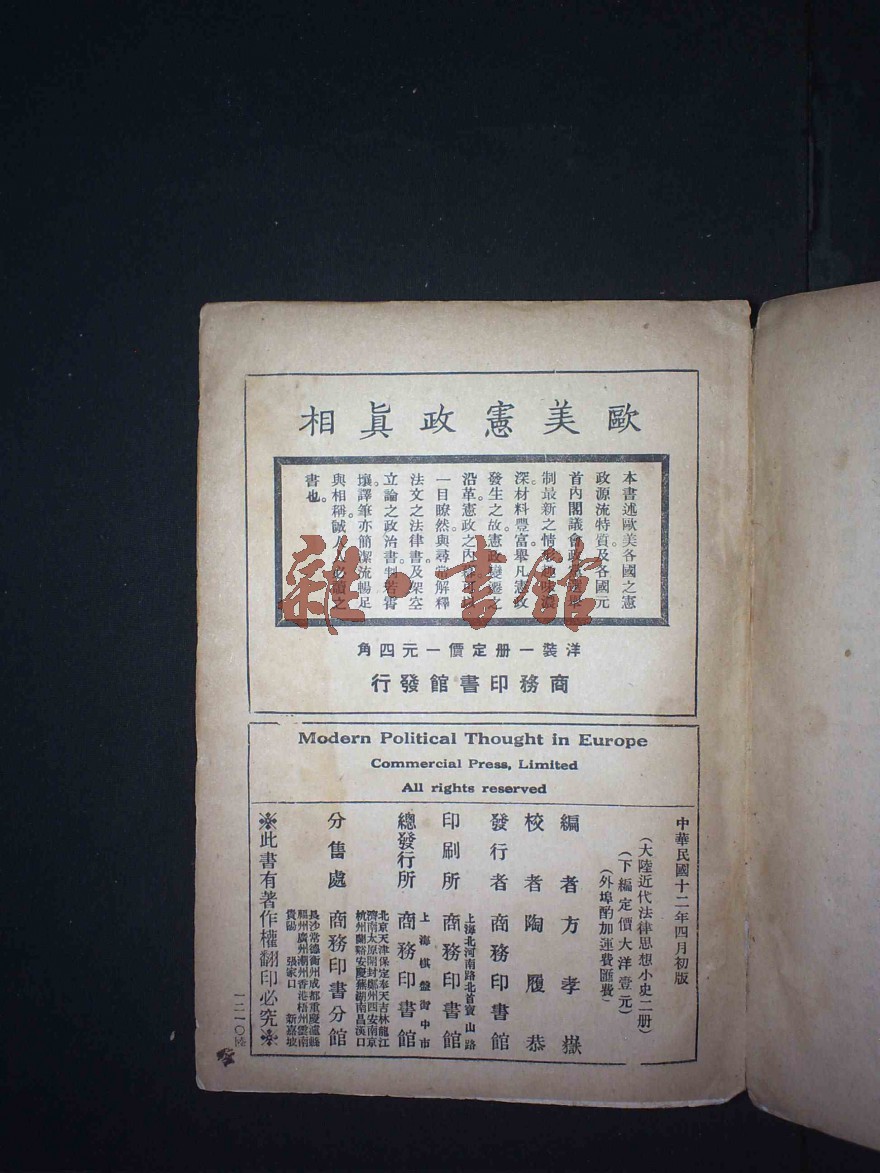 歐美憲政眞相
本書述歐美各國之憲
政源流特質及各國元
首內閣議會政
制最新之情
深。材料豐富。舉凡憲政
發生之故。憲政變遷之
沿革。憲政之內
一目瞭然。與尋常解釋
法文之法律書。及架空
立論之政治書。判若霄
壤。譯筆亦簡潔流暢。足
與相稱。誠人人必讀之
書也。
洋裝一册定價一元四角
商務印書館發行
雜·書館
Modern Political Thought in Europe
Commercial Press, Limited
All rights reserved
中華民國十二年四月初版
(大陸近代法律思想小史二册)
(下編定價大洋壹元)
(外埠酌加運費匯費)
編者方孝嶽
校者陶履恭
發行者商務印書館
上海北河南路北首寶山路
印刷所商務印書館
上海棋盤街中市
總發行所商務印書館
北京天津保定奉天吉林龍江
濟南太原開封鄭州西安南京
杭州蘭谿安慶蕪湖南昌漢口
分售處商務印書分館
長沙常德衡州成都重慶瀘縣
福州廣州潮州香港梧州雲南
貴陽張家口新嘉坡
※此書有著作權翻印必究※